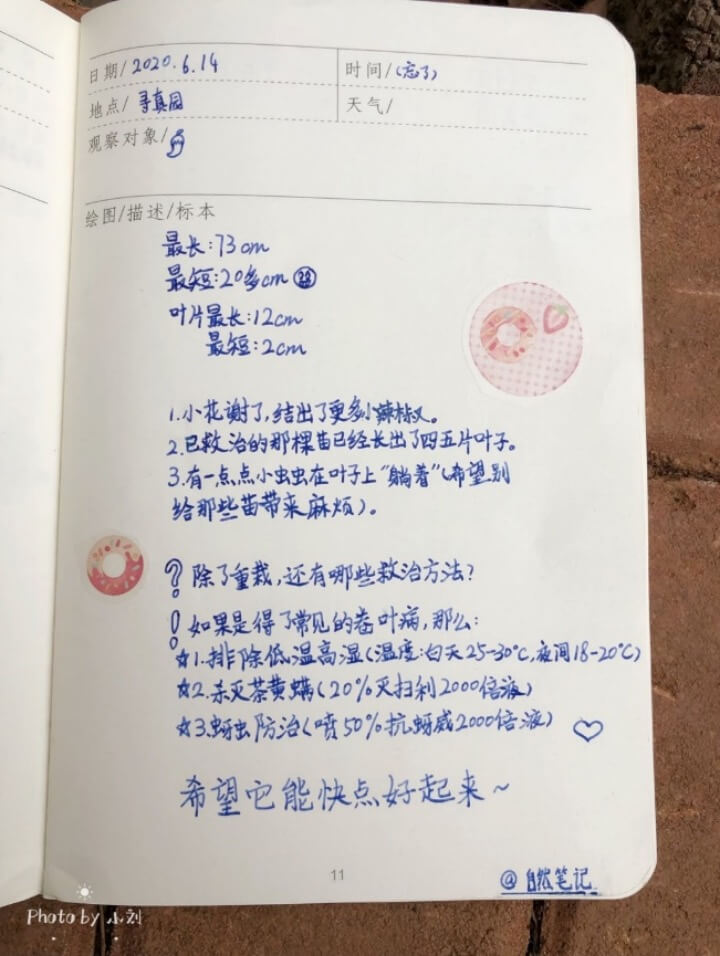 日期/2020.6.14
时间/(忘了)
地点/寻真园
天气/
观察对象/
绘图/描述/标本
最长:73cm
最短:20多cm
叶片最长:12cm
最短:2cm
1.小花谢了,结出了更多小辣椒。
2.已救治的那棵苗已经长出了四五片叶子。
3.有一点点小虫虫在叶子上"躺着"(希望别
给那些苗带来麻烦)。
? 除了重栽,还有哪些救治方法?
! 如果是得了常见的卷叶病,那么:
☆1.排除低温高湿(温度:白天25-30℃,夜间18-20℃)
☆2.杀灭茶黄螨(20%灭扫利2000倍液)
☆3.蚜虫防治(喷50%抗蚜威2000倍液)
希望它能快点好起来~
11
@自然笔记
Photo by 小刘